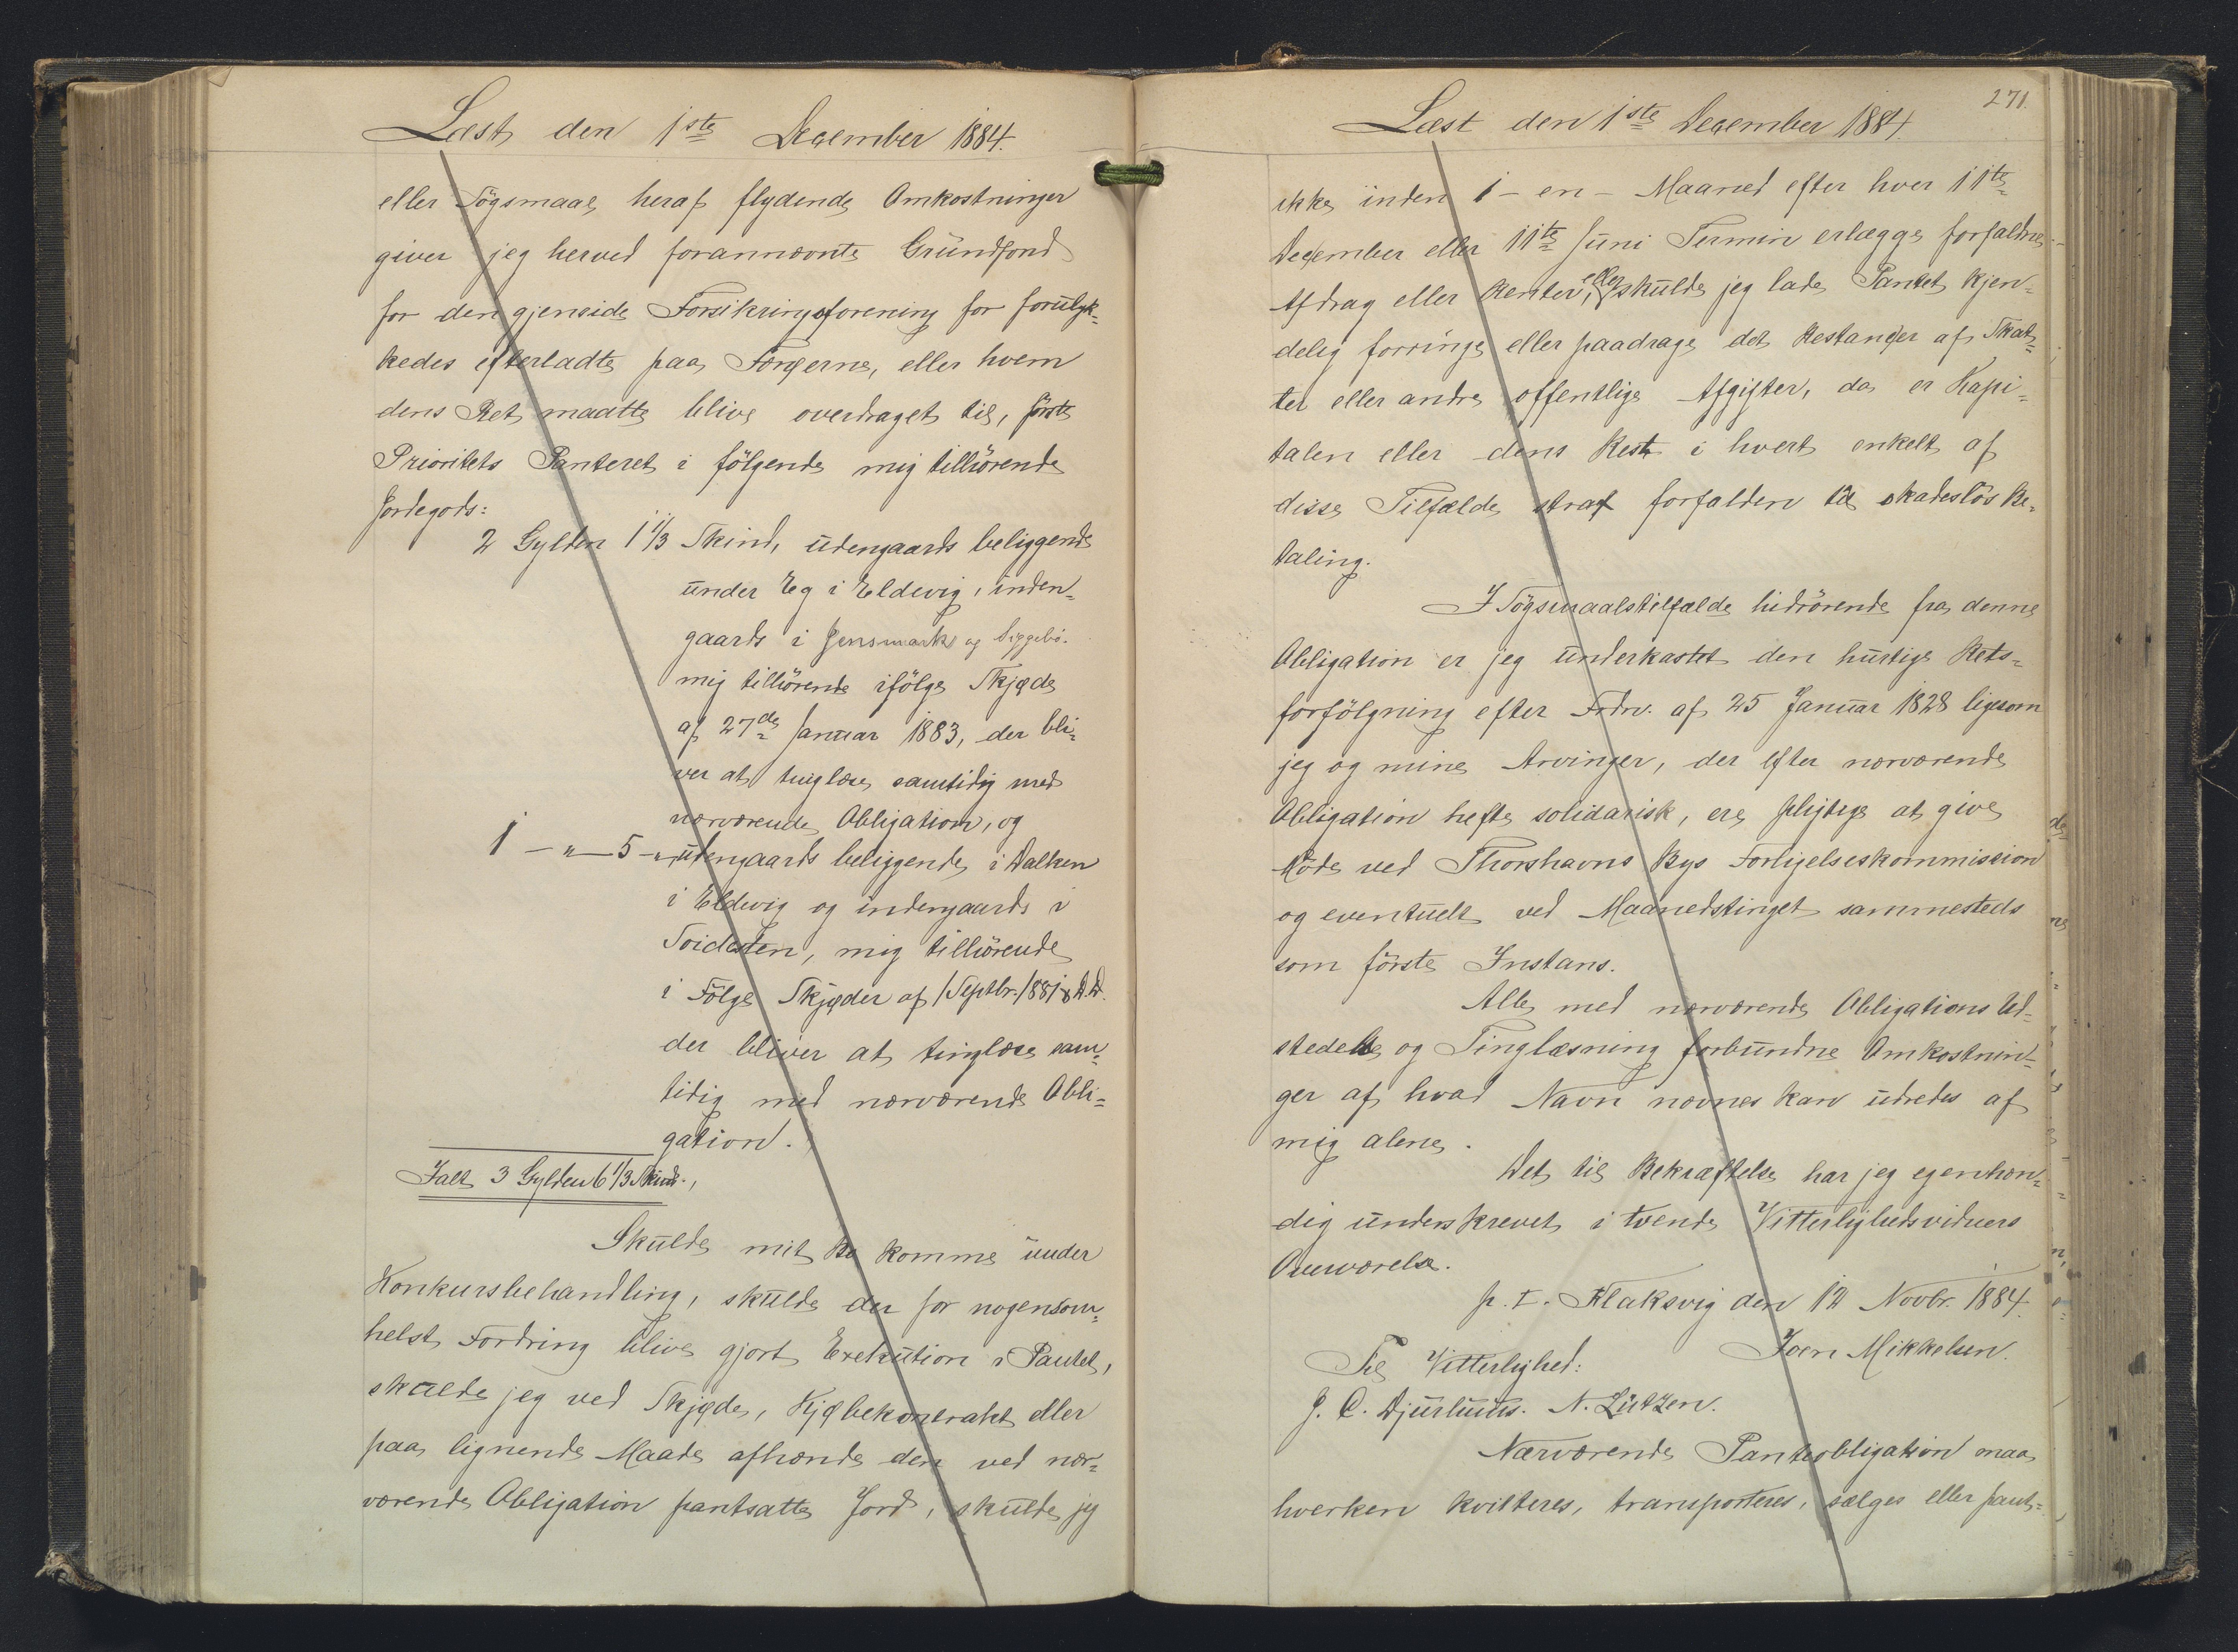 Læst den 1ste December 1884.
eller Søgsmaal heraf flydende Omkostninger
giver jeg herved forannævnte Grundfond
for den gjenside Forsikringsforening for forulyk-
kedes efterladte paa Færøerne, eller hvem
dens Ret maatte blive overdraget til, første
Prioritets Panteret i følgende mig tilhørende
Jordegods:
2 Gylden 1 1/3 Skind, udengaards beliggende
under Eg i Eldevig, inden-
gaards i Jensmark og Siggebø.
mig tilhørende ifølge Skjøde
af 27de Januar 1883, der bli-
ver at tinglæse samtidig med
nærværende Obligation, og
1 -"- 5 -"- udengaards beliggende i Dalken
i Eldevig og indengaards i
mig tilhørende
i Følge Skjøder af 1 Septbr. 1881 & D.D.
der bliver at tinglæse sam-
tidig med nærværende Obli-
gation.
Ialt 3 Gylden 6 1/3 Skind.,
Skulde mit Bo komme under
Konkursbehandling, skulde der for nogensom-
helst Fordring blive gjort Exekution i Pantet,
skulde jeg ved Skjøde, Kjøbekontrakt eller
paa lignende Maade afhænde den ved nær-
værende Obligation pantsatte Jord, skulde jeg
271.
Læst den 1ste December 1884.
ikke inden 1 - en - Maaned efter hver 11te
December eller 11te Juni Termin erlægge forfaldne
Afdrag eller Renter, eller skulde jeg lade Pantet kjen-
delig forringe eller paadrage det Restancer af Skat-
ter eller andre offentlige Afgifter, da er Kapi-
talen eller dens Rest i hvert enkelt af
disse Tilfælde strax forfalden til skadesløs Be-
taling.
I Søgsmaalstilfælde hidrørende fra denne
Obligation er jeg underkastet den hurtige Rets-
forfølgning efter Frdn. af 25 Januar 1828 ligesom
jeg og mine Arvinger, der efter nærværende
Obligation hefte solidarisk, ere pligtige at give
Møde ved Thorshavns Bys Forligelseskommission
og eventuelt ved Maanedstinget sammesteds
som første Instans.
Alle med nærværende Obligations Ud-
stedelse og Tinglæsning forbundne Omkostnin-
ger af hvad Navn nævnes kan udredes af
mig alene.
Det til Bekræftelse har jeg egenhæn-
dig underskrevet i tvende Vitterlighedsvidners
Overværelse.
p. t. Klaksvig den 12 Novbr. 1884.
Joen Mikkelsen.
Til Vitterlighed:
J. C. Djurhuus. N. Lützen.
Nærværende Panteobligation maa
hverken kvitteres, transporteres, sælges eller pant-